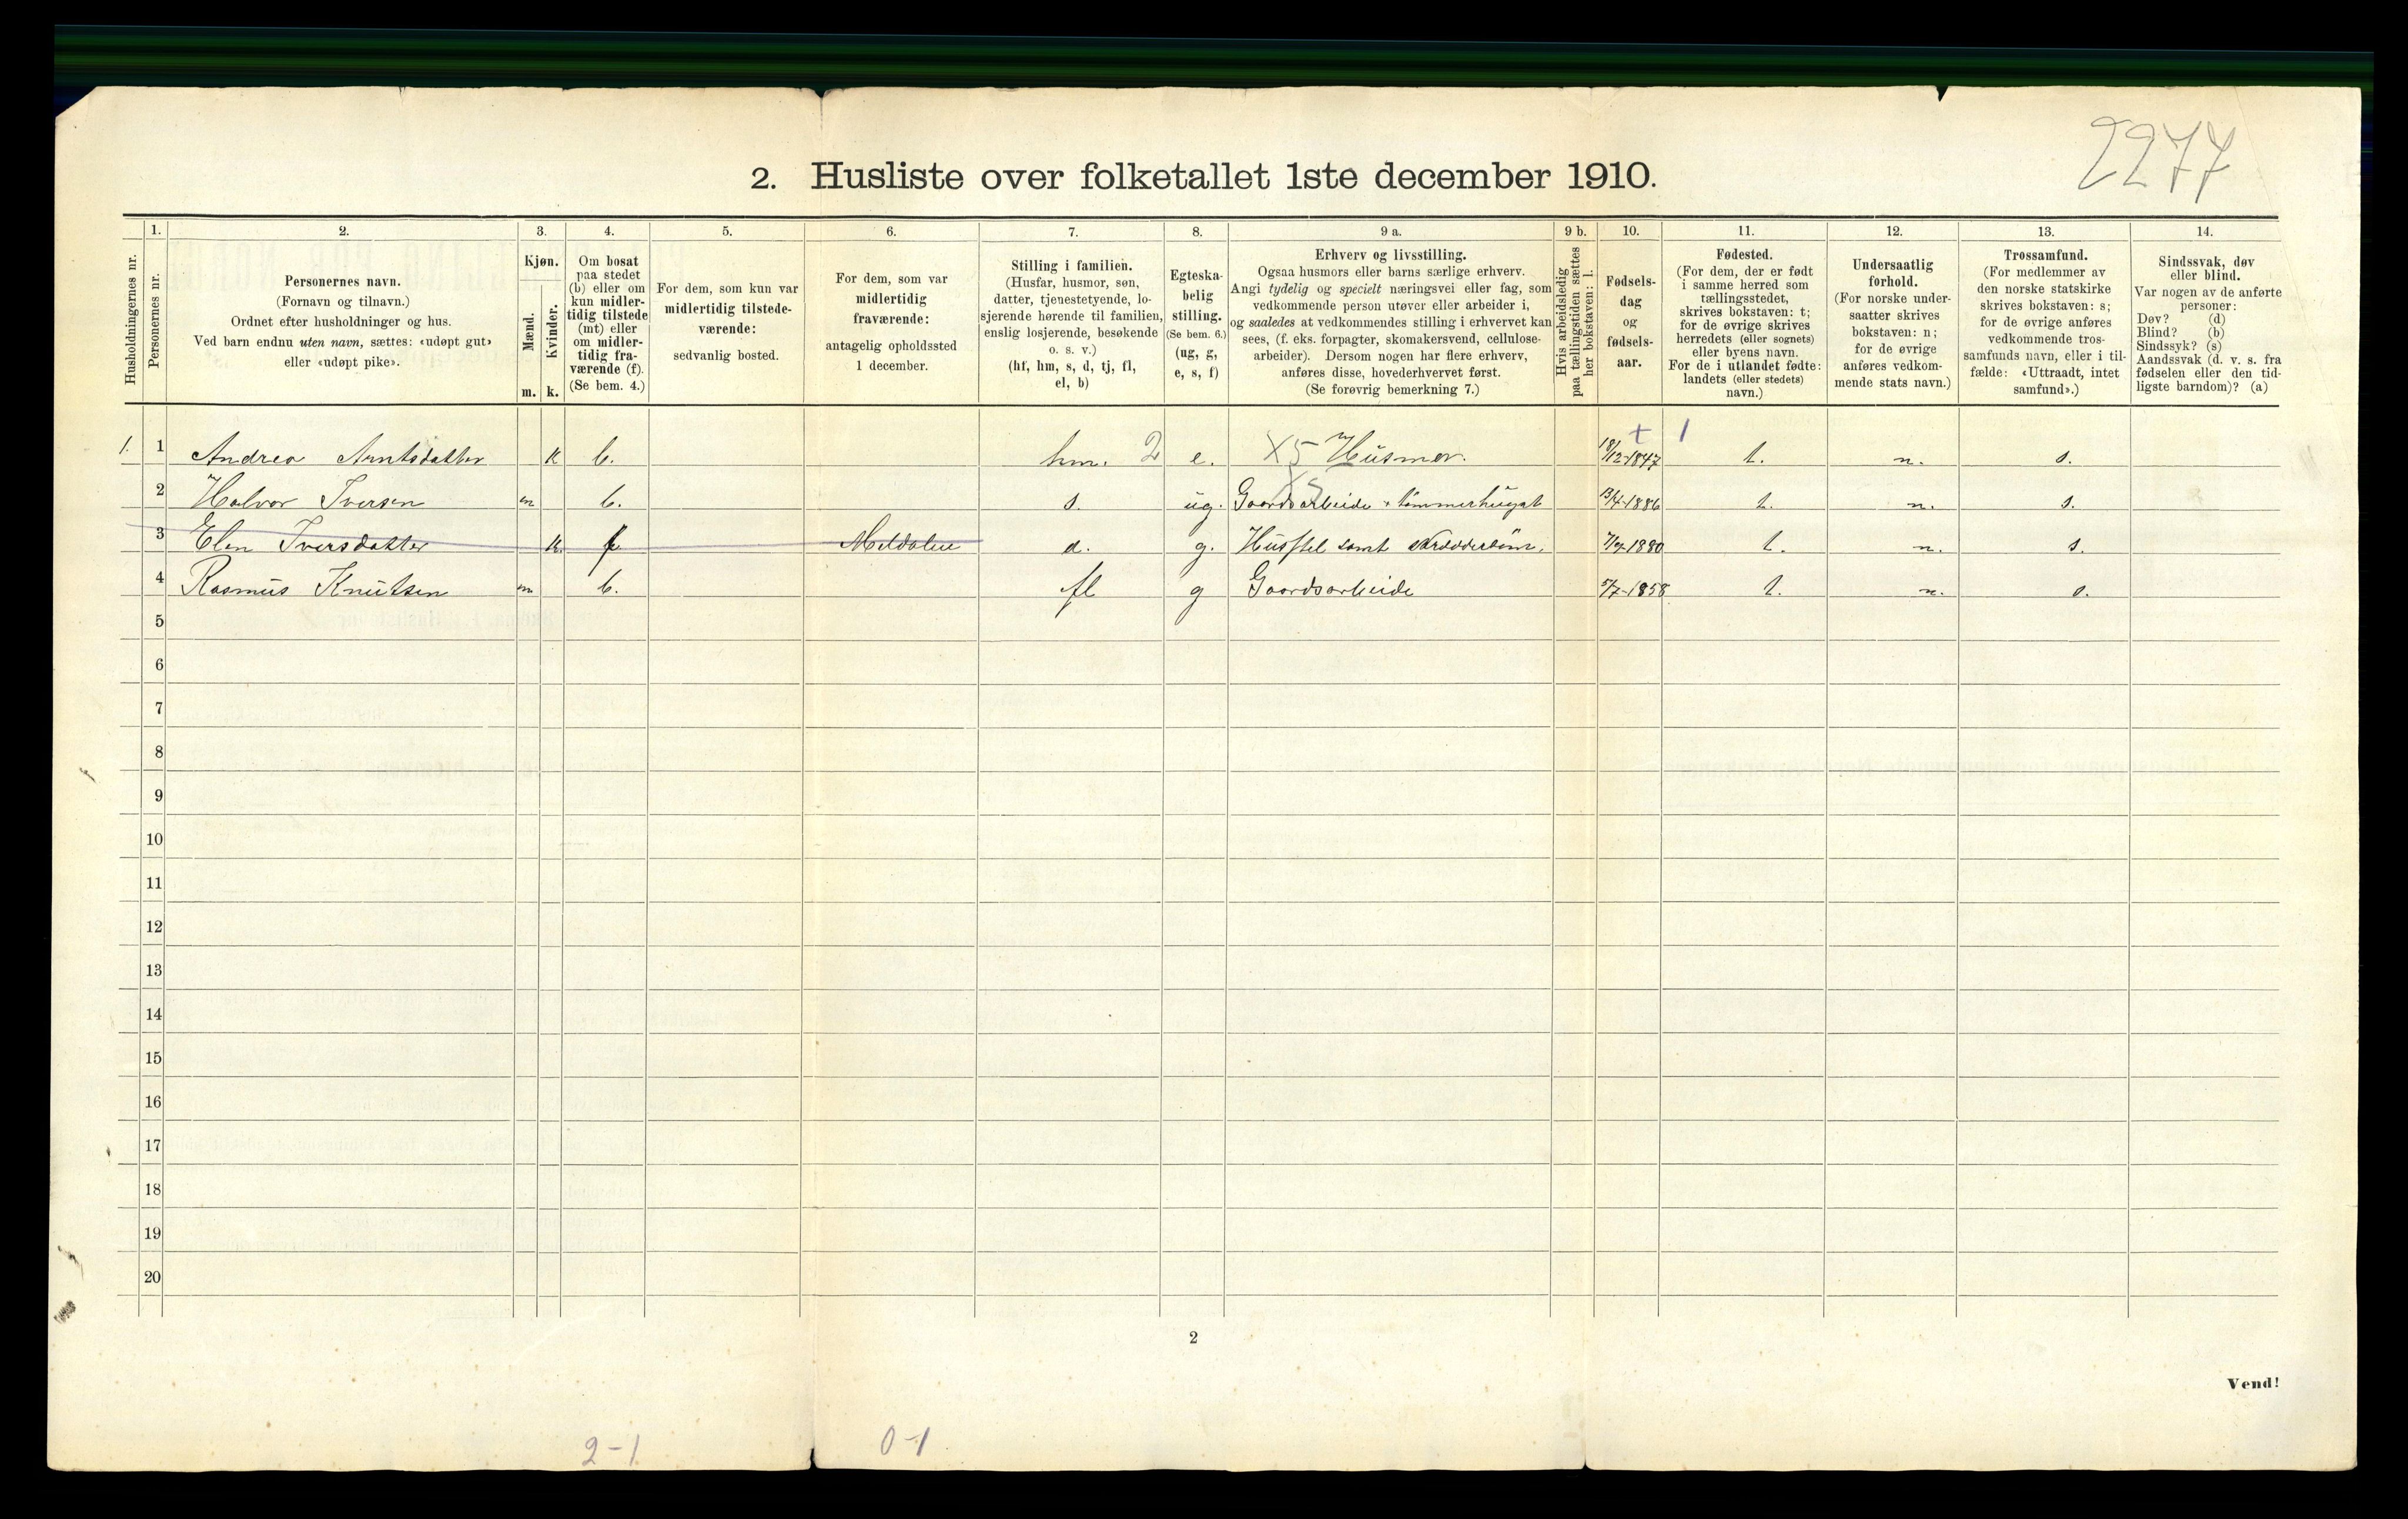 2277
2. Husliste over folketallet 1ste december 1910.
Husholdningernes nr.
1.
Personernes nr.
2.
Personernes navn.
(Fornavn og tilnavn.)
Ordnet efter husholdninger og hus.
Ved barn endnu uten navn, sættes: «udøpt gut»
eller «udøpt pike».
3.
Kjøn.
Mænd.
Kvinder.
m. k.
4.
Om bosat
paa stedet
(b) eller om
kun midler-
tidig tilstede
(mt) eller
om midler-
tidig fra-
værende (f).
(Se bem. 4.)
5.
For dem, som kun var
midlertidig tilstede-
værende:
sedvanlig bosted.
6.
For dem, som var
midlertidig
fraværende:
antagelig opholdssted
1 december.
7.
Stilling i familien.
(Husfar, husmor, søn,
datter, tjenestetyende, lo-
sjerende hørende til familien,
enslig losjerende, besøkende
o. s. v.)
(hf, hm, s, d, tj, fl,
el, b)
8.
Egteska-
belig
stilling.
(Se bem. 6.)
(ug, g,
e, s, f)
9 a.
Erhverv og livsstilling.
Ogsaa husmors eller barns særlige erhverv.
Angi tydelig og specielt næringsvei eller fag, som
vedkommende person utøver eller arbeider i,
og saaledes at vedkommendes stilling i erhvervet kan
sees, (f. eks. forpagter, skomakersvend, cellulose-
arbeider). Dersom nogen har flere erhverv,
anføres disse, hovederhvervet først.
(Se forøvrig bemerkning 7.)
9 b.
Hvis arbeidsledig
paa tællingstiden sættes
her bokstaven: l.
10.
Fødsels-
dag
og
fødsels-
aar.
11.
Fødested.
(For dem, der er født
i samme herred som
tællingsstedet,
skrives bokstaven: t;
for de øvrige skrives
herredets (eller sognets)
eller byens navn.
For de i utlandet fødte:
landets (eller stedets)
navn.)
12.
Undersaatlig
forhold.
(For norske under-
saatter skrives
bokstaven: n;
for de øvrige
anføres vedkom-
mende stats navn.)
13.
Trossamfund.
(For medlemmer av
den norske statskirke
skrives bokstaven: s;
for de øvrige anføres
vedkommende tros-
samfunds navn, eller i til-
fælde: «Uttraadt, intet
samfund».)
14.
Sindssvak, døv
eller blind.
Var nogen av de anførte
personer:
Døv? (d)
Blind? (b)
Sindssyk? (s)
Aandssvak (d. v. s. fra
fødselen eller den tid-
ligste barndom)? (a)
1. 1 Andrea Arntsdatter K b. hm. 2 e. X5 Husmor. 18/12-1847 + 1 t. n. s.
2 Halvor Iversen m b. s. ug. Gaardsarbeide + tømmerhugst X5 13/4-1886 t. n. s.
3 Elen Iversdatter K. f Meldalen d. g. Husstel samt 7/9-1880 t. n. s.
4 Rasmus Knutsen m b. fl g Gaardsarbeide 5/7-1858 t. n. s.
5
6
7
8
9
10
11
12
13
14
15
16
17
18
19
20
2
Vend!
2-1 0-1